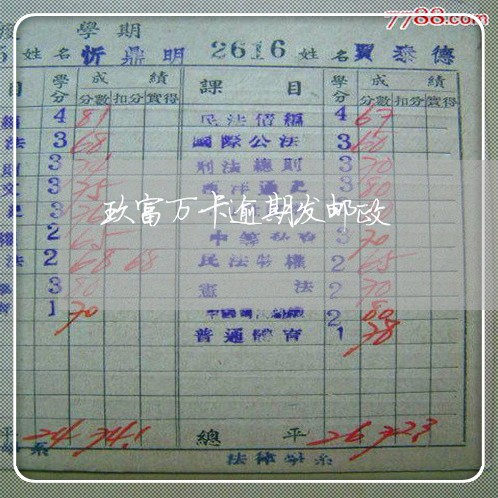 7788.com
學期
姓名 忻鼎明 2616 姓名 賈泰德
目 學分 成績 課目 學分 成績
分數 扣分 實得 分數 扣分 實得
4 81 民法債編 4 67
法 3 68 國際公法 3 60
3 刑法總則 3 70
3 75 西洋通史 3 80
玖富万卡逾期发邮政
2 65 3 70
法 2 68 68 民法物權 2 65
3 80 憲法 2 70
1 70 2 80
普通體育 1 78
平 24 74.1 總平 26 72.3
系 法律學系